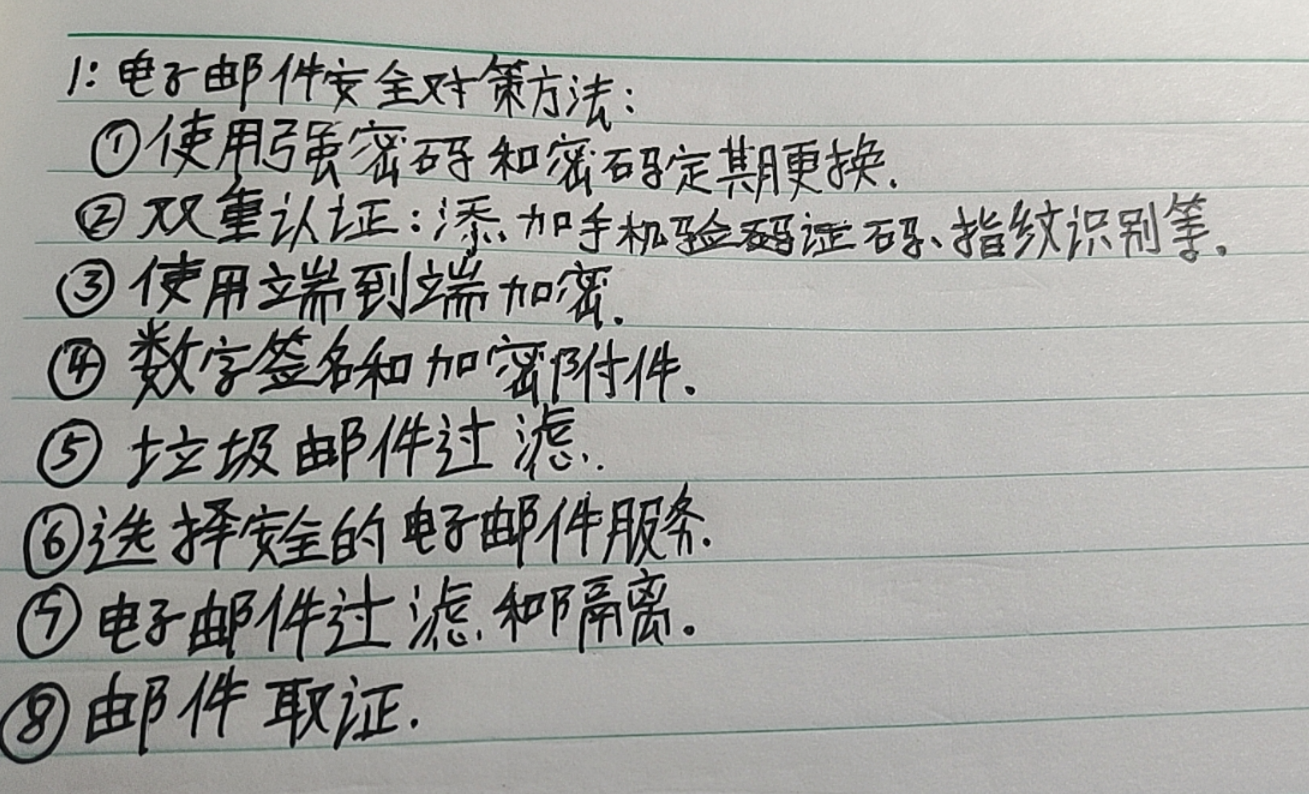 1: 电子邮件安全对策方法:
①使用强密码和密码定期更换.
②双重认证:添加手机验证码、指纹识别等.
③使用端到端加密.
④数字签名和加密附件.
⑤垃圾邮件过滤.
⑥选择安全的电子邮件服务.
⑦电子邮件过滤和隔离.
⑧邮件取证.